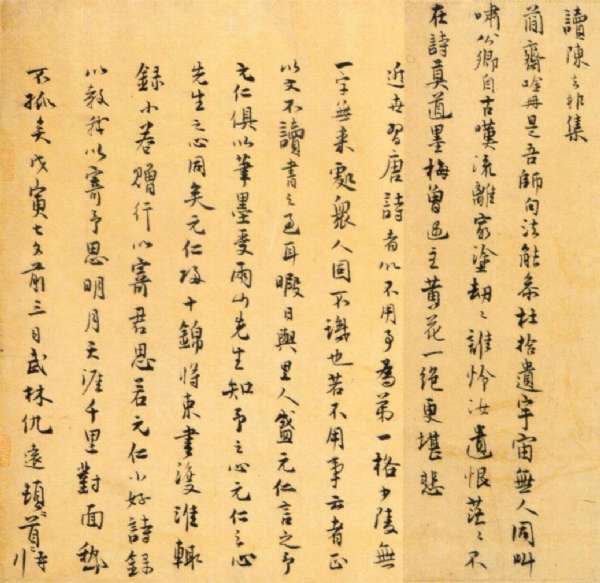 讀陳去非集
簡齋吟冊是吾師句法能參杜拾遺宇宙無人同叫
嘯公卿自古嘆流離窮塗劫〻誰怜汝遺恨茫〻不
在詩莫道墨梅曾遇主黄花一絶更堪悲
近世習唐詩者以不用事為第一格少陵無
一字無来處衆人固不識也若不用事云者正
以文不讀書之過耳暇日與里人盛元仁言之予
元仁俱以筆墨受雨山先生知予之心元仁之心
先生之心同矣元仁歸十錦將東書渡淮輙
録小卷贈行以寄君思若元仁小好詩録
以教我以寄予思明月天涯千里對面
不孤矣戊寅七夕前三日武林仇遠頓首再拜